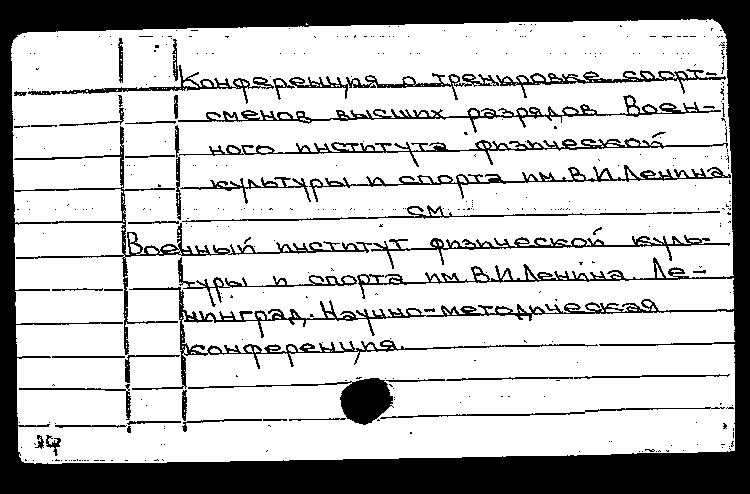 Конференция о тренировке спорт-
сменов высших разрядов Воен-
ного института физической
культуры и спорта им. В.И.Ленина
см.
Военный институт физической куль-
туры и спорта им. В.И.Ленина. Ле-
нинград. Научно-методическая
конференция.